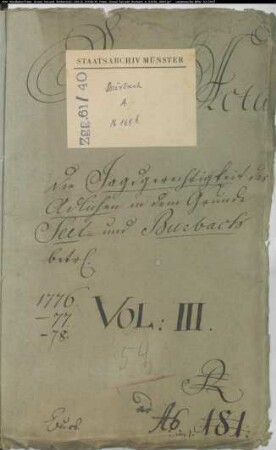 Acta
STAATSARCHIV MÜNSTER
Zgg. 61/40
Burbach
A
Die Jagdgerechtigkeit der
Adlichen in dem Grunde
Seel- und Burbach
betr.
1776
-77
-78.
VOL: III.
54
R
ad No. 181.
Burb.